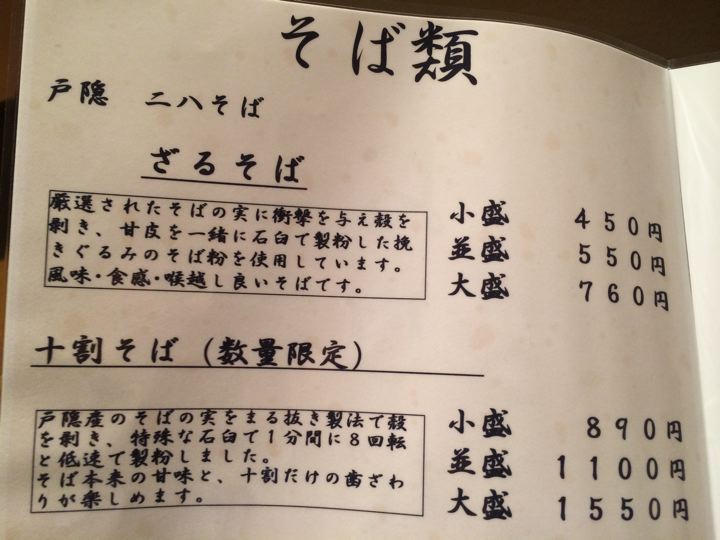 そば類
戸隠 二八そば
ざるそば
厳選されたそばの実に衝撃を与え殻を
剥き、甘皮を一緒に石臼で製粉した挽
きぐるみのそば粉を使用しています。
風味・食感・喉越し良いそばです。
小盛 450円
並盛 550円
大盛 760円
十割そば (数量限定)
戸隠産のそばの実をまる抜き製法で殻
を剥き、特殊な石臼で1分間に8回転
と低速で製粉しました。
そば本来の甘味と、十割だけの歯ざわ
りが楽しめます。
小盛 890円
並盛 1100円
大盛 1550円